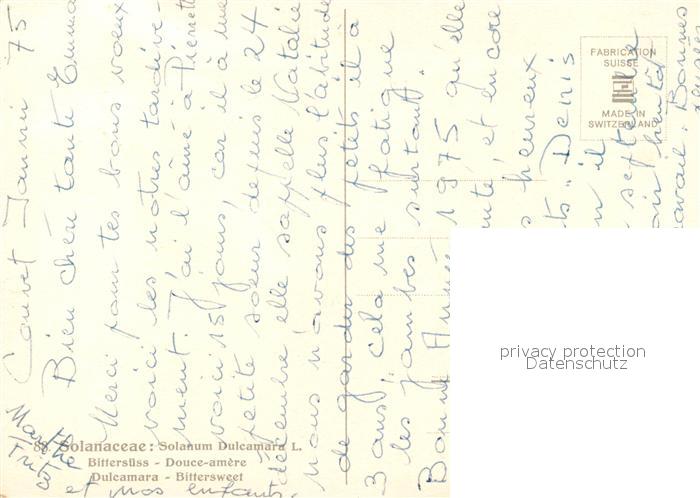 Couvet Janvier 75
Bien chère tante Emma
Merci pour tes bons vœux
voici les nôtres tardive-
ment. J'ai l'aîné à Pierrette
voici 15 jours, car il a une
petite sœur depuis le 24
décembre elle s'appelle Natalie
nous n'avons plus l'abitude
de garder des petits il a
3 ans, cela me fatigue
les jambes surtout.
Bonne Année 1975 qu'elle
et encore
heureux
Denis
il
septembre
bientôt
travail. Bonnes
Marthe
Fritz
et nos enfants.
88. Solanaceae: Solanum Dulcamara L.
Bittersüss - Douce-amère
Dulcamara - Bittersweet
FABRICATION
SUISSE
MADE IN
SWITZERLAND
privacy protection
Datenschutz